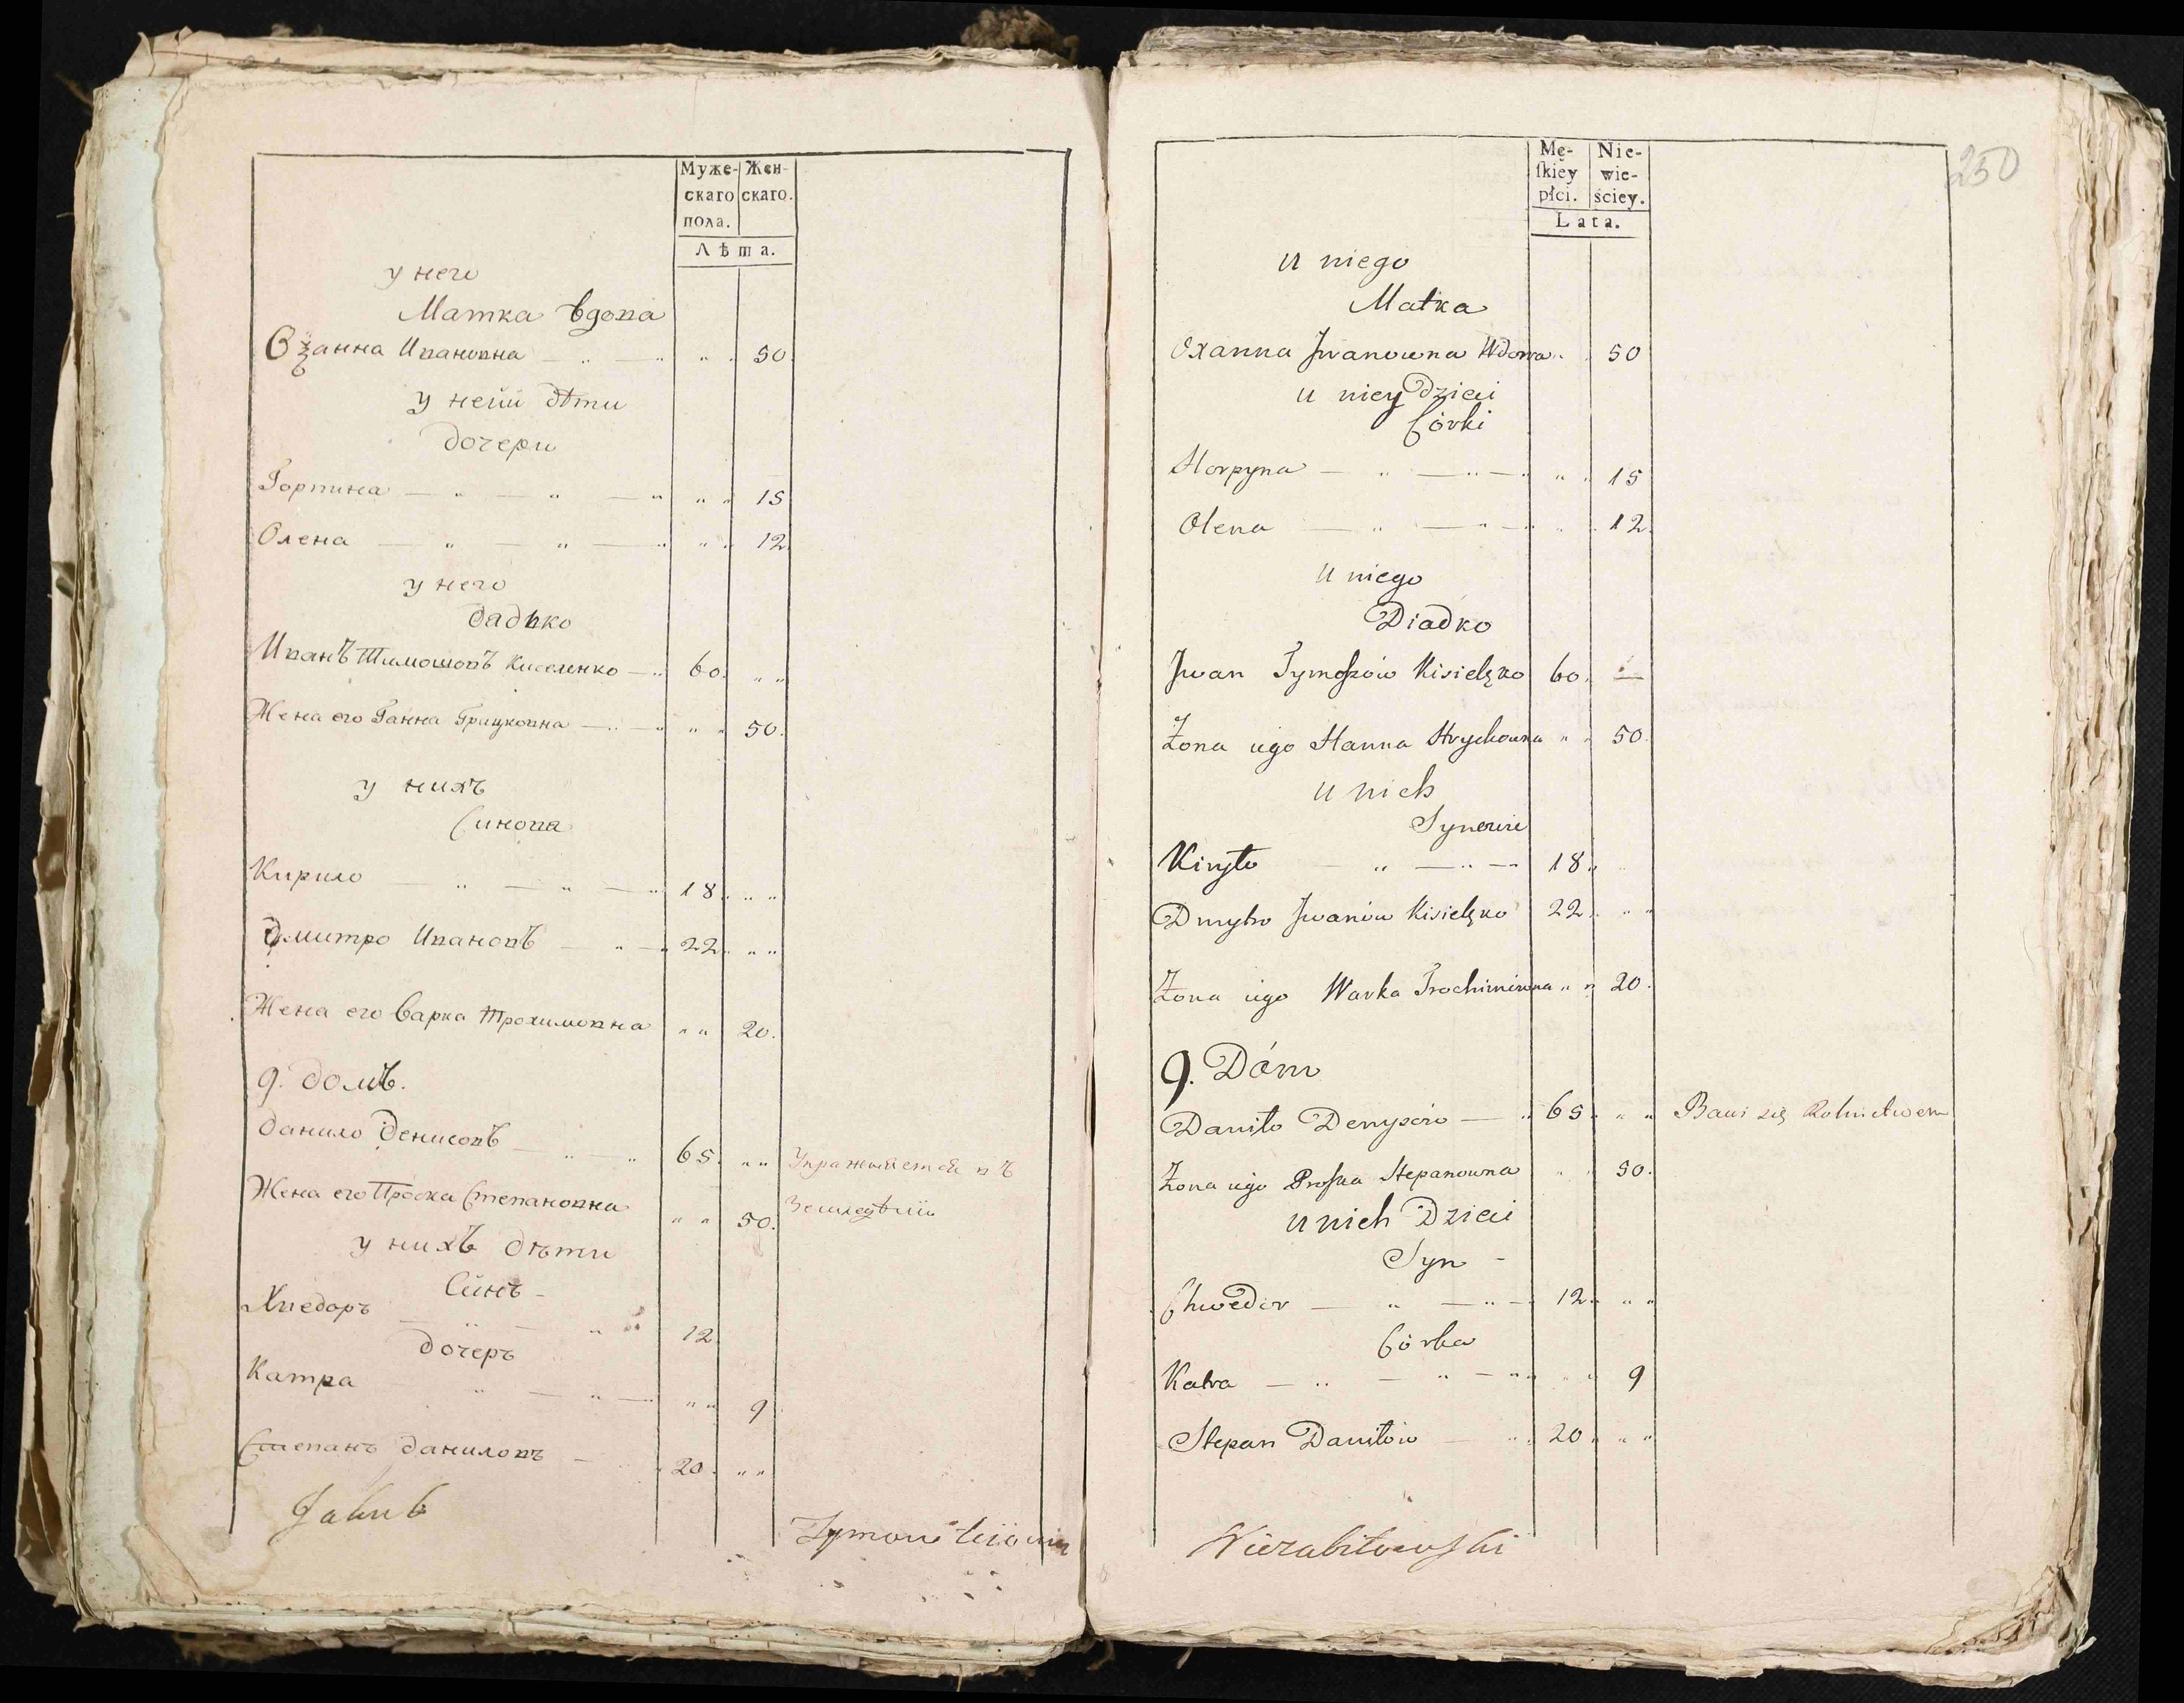 Муже- Жен-
скаго скаго.
пола.
Лѣта.
у него
Матка вдова
Оѯанна Ивановна — „ — „ „ „ 50
у неїи дѣти
дочери
Горпина — „ — „ — „ „ „ 15
Олена — „ — „ — „ „ „ 12
у него
дадько
Иванъ Тимошовъ Киселенко — „ 60. „ „
Жена его Ганна Грицковна — „ — „ „ „ 50.
у нихъ
Синова
Кирило — „ — „ — „ 18. „ „
Дмитро Ивановъ — „ — „ 22. „ „
Жена его Варка Трохимовна „ „ 20.
9. домъ.
Данило Денисовъ — „ — „ 65. „ „ Упражняется въ
Жена его Проска Степановна „ „ 50. Земледѣлїи
у нихъ дѣти
Синъ -
Хведоръ — „ — „ 12
дочеръ
Катра „ — „ — „ „ „ 9
Степанъ Даниловъ — „ 20. „ „
Jakub
250
Mę- Nie-
ſkiey wie-
płci. ściey.
Lata.
u niego
Matka
Oxanna Jwanowna Wdowa „ 50
u niey Dzieci
Córki
Horpyna — „ — „ — „ „ „ 15
Olena — „ — „ — „ „ „ 12.
u niego
Diadko
Jwan Tymoſzów Kisielęko 60. —
Żona iego Hanna Hryckowna „ „ 50.
u nich
Synowie
Kiryło — „ — „ — 18 „
Dmytro Jwanów Kisielęko 22. „ „
Żona iego Warka Trochimiwna „ „ 20.
9. Dóm
Daniło Denysów — „ 65. „ „ Bawi się Rolnictwem
Żona iego Proſka Stepanowna „ „ 50.
u nich Dzieci
Syn -
Chwedor — „ — „ — 12. „ „
Córka
Katra — „ — „ — „ „ „ 9
Stepan Daniłów — „ 20 „ „
Nierabitowſki